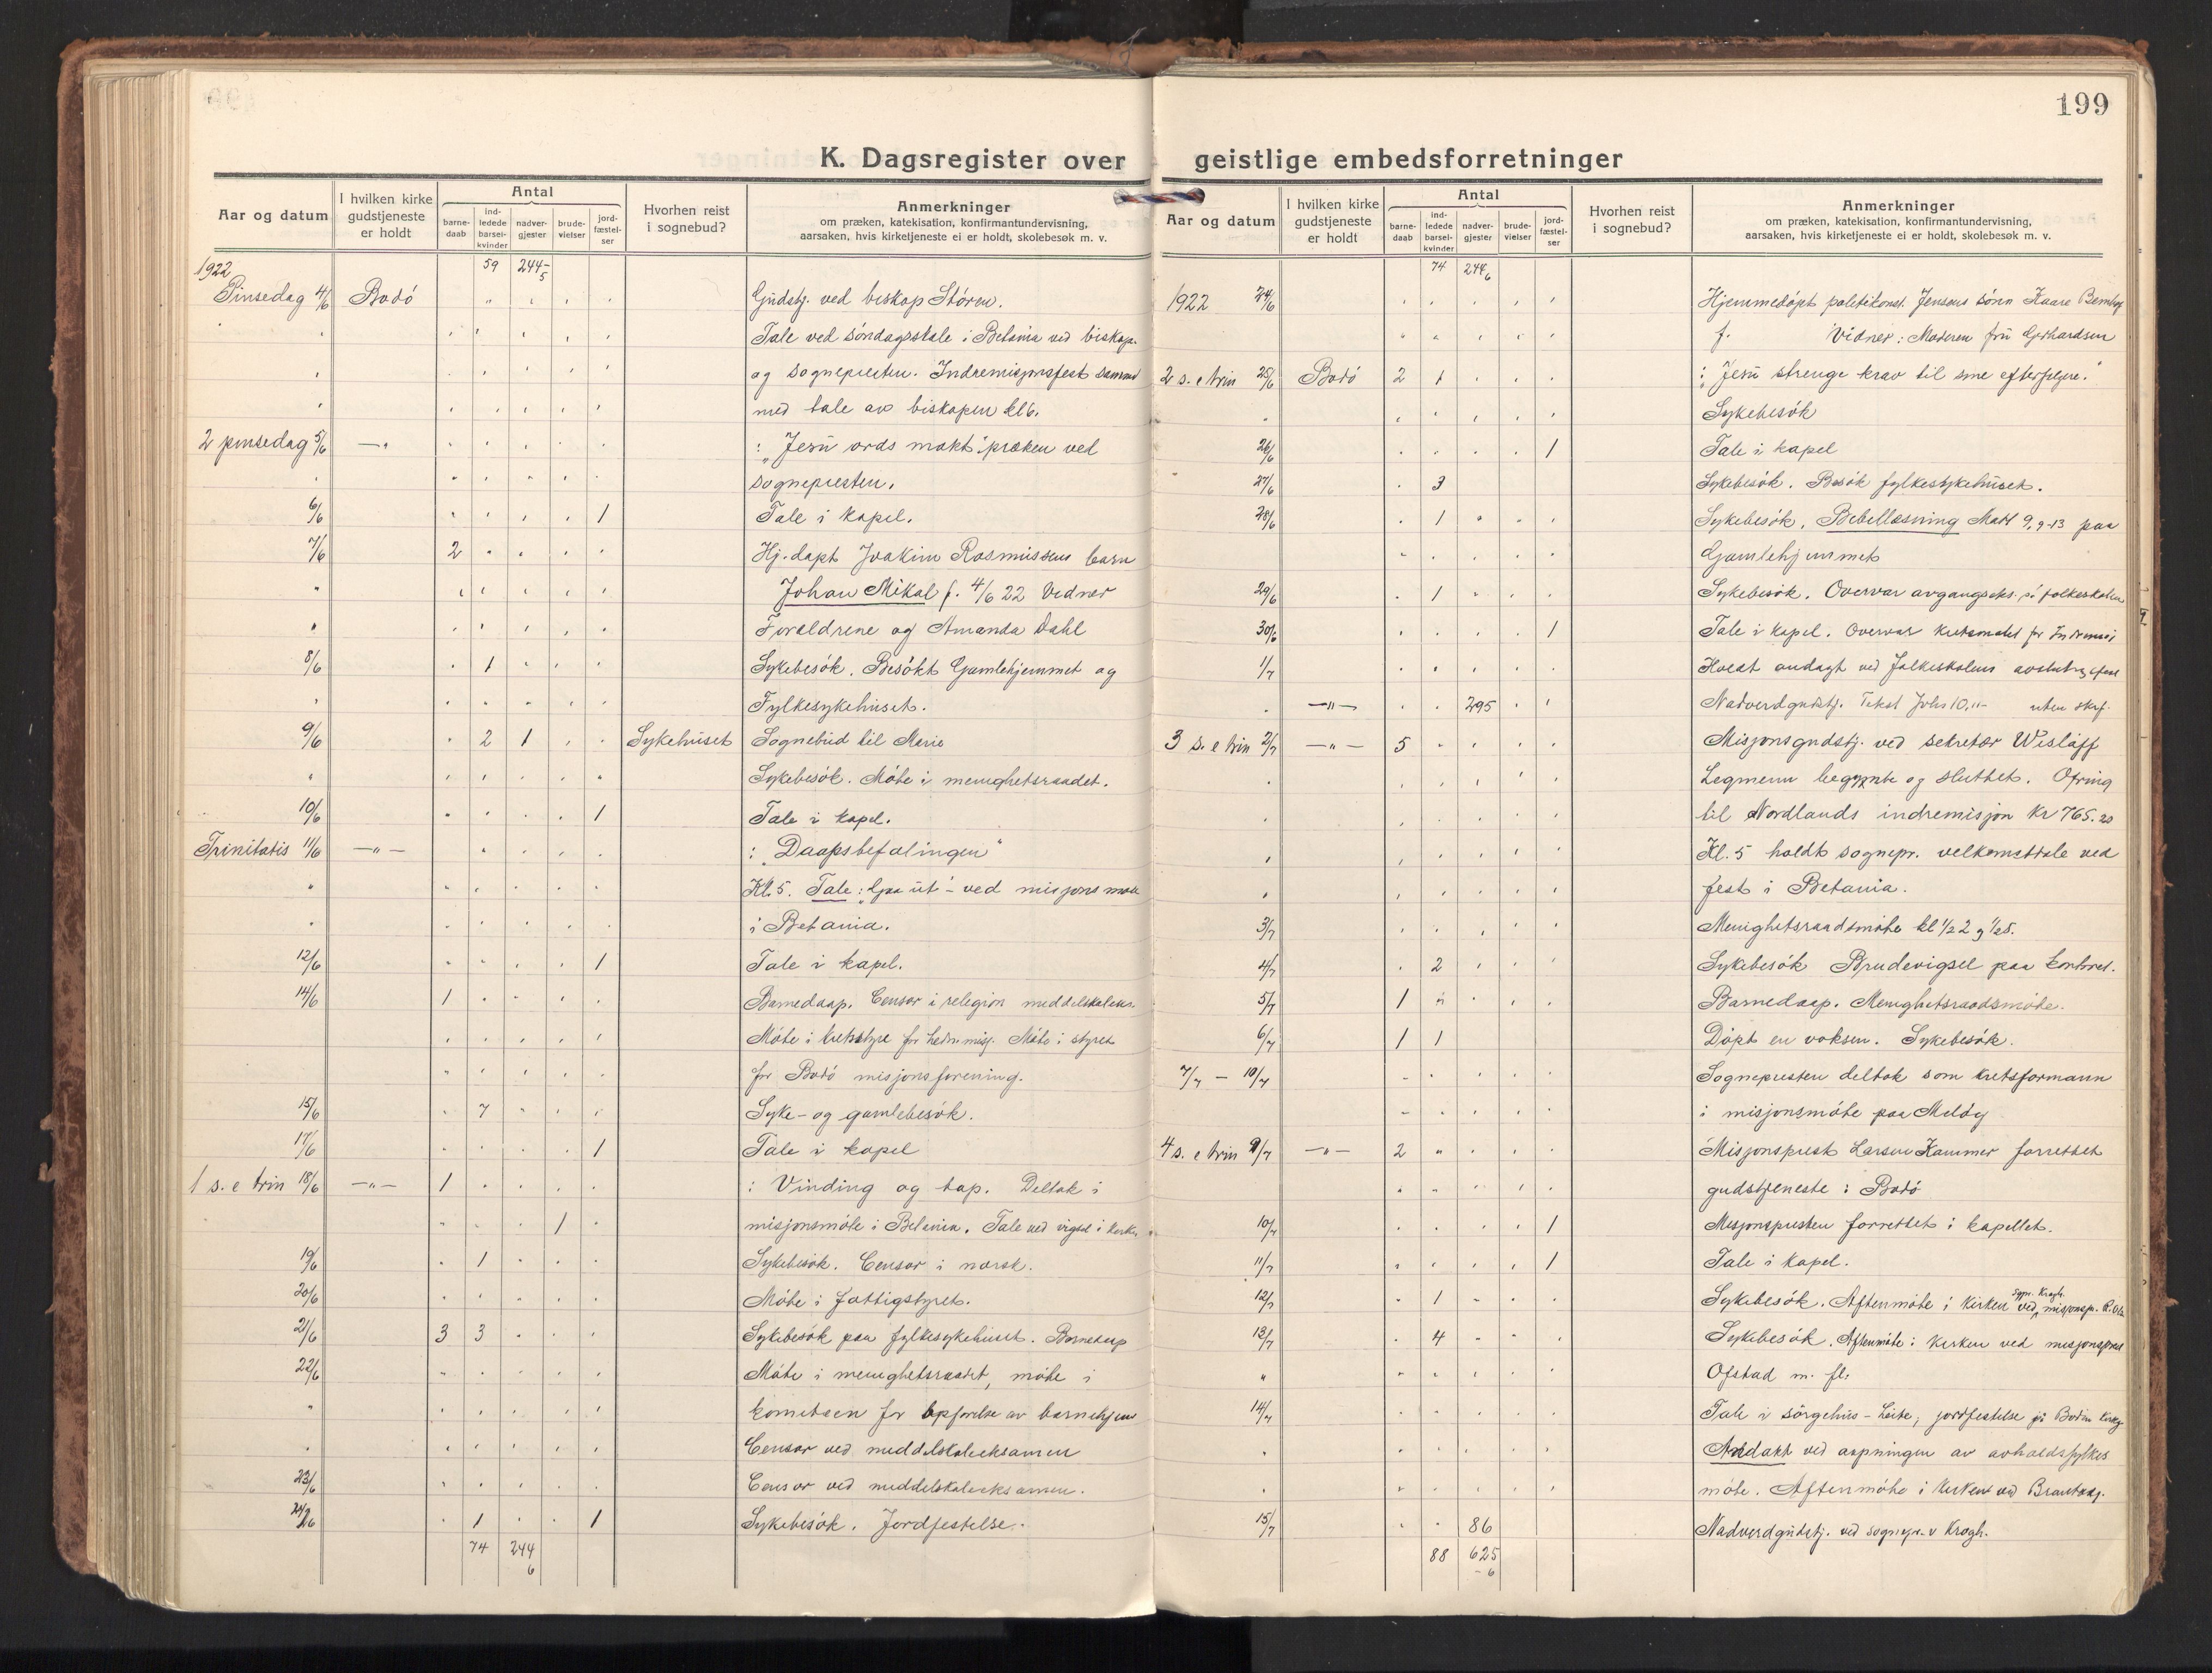 199
K. Dagsregister over geistlige embedsforretninger
Aar og datum
I hvilken kirke gudstjeneste er holdt
Antal
barne-daab
ind-ledede barsel-kvinder
nadver-gjester
brude-vielser
jord-fæstel-ser
Hvorhen reist i sognebud?
Anmerkninger
om præken, katekisation, konfirmantundervisning,
aarsaken, hvis kirketjeneste ei er holdt, skolebesøk m. v.
1922 59 244-5
Pinsedag 4/6 Bodö Gudstj. ved biskop Stören.
Tale ved söndagsskole i Betania ved biskop
og sognepresten. Indremisjonsfest
med tale av biskopen kl 6.
2 pinsedag 5/6 —"— : "Jesu ords makt" præken ved
sognepresten.
6/6 1 Tale i kapel.
7/6 2 Hj. döpt Joakim Rasmussens barn
Johan Mikal f. 4/6 22 Vidner
Forældrene og Amanda Dahl
8/6 1 Sykebesök. Besökt Gamlehjemmet og
Fylkesykehuset.
9/6 2 1 Sykehuset Sognebud til Marie
Sykebesök. Möte i menighetsraadet.
10/6 1 Tale i kapel.
Trinitatis 11/6 —"— : "Daapsbefalingen"
Kl. 5. Tale: "Gaa ut" - ved misjonsmöte
i Betania.
12/6 1 Tale i kapel.
14/6 1 Barnedaap. Censor i religion middelskoleeks.
Möte i kretsstyre for misj. Möte i styret
for Bodö misjonsforening.
15/6 7 Syke- og gamlebesök.
17/6 1 Tale i kapel
1 s. e trin 18/6 —"— 1 : Vinding og tap. Deltok i
1 misjonsmöte i Betania. Tale ved vigsel i kirken
19/6 1 Sykebesök. Censor i norsk.
20/6 Möte i fattigstyret.
21/6 3 3 Sykebesök paa fylkesykehuset. Barnedaap
22/6 Möte i menighetsraadet, möte i
komiteen for opförelse av barnehjem
Censor ved middelskoleeksamen
23/6 Censor ved middelskoleeksamen.
24/6 1 1 Sykebesök. Jordfestelse.
74 244 6
Aar og datum
I hvilken kirke gudstjeneste er holdt
Antal
barne-daab
ind-ledede barsel-kvinder
nadver-gjester
brude-vielser
jord-fæstel-ser
Hvorhen reist i sognebud?
Anmerkninger
om præken, katekisation, konfirmantundervisning,
aarsaken, hvis kirketjeneste ei er holdt, skolebesøk m. v.
74 244 6
1922 24/6 Hjemmedöpt politikonst. Jensens sönn Kaare
f. Vidner: Moderen fru Gerhardsen
2 s. e trin 25/6 Bodö 2 1 : "Jesu strenge krav til sine efterfölgere."
Sykebesök
26/6 1 Tale i kapel
27/6 3 Sykebesök. Besök fylkesykehuset.
28/6 1 Sykebesök. Bibellæsning Mat 9, 9-13 paa
Gamlehjemmet
29/6 1 Sykebesök. Overvar avgangseks. på folkeskolen
30/6 1 Tale i kapel. Overvar kretsmötet for Indremisj
1/7 Holdt andagt ved folkeskolens avslutn.fest
—"— 295 Nadverdgudstj. Tekst Johs 10,11- uten skrf.
3 s. e trin 2/7 —"— 5 Misjonsgudstj. ved sekretær Wislöff
Legmenn begynte og sluttet. Ofring
til Nordlands indremisjon Kr 765.20
Kl. 5 holdt sognepr. velkomsttale ved
fest i Betania.
3/7 Menighetsraadsmöte kl 1/2 2 og 1/2 5.
4/7 2 Sykebesök Brudevigsel paa kontoret.
5/7 1 Barnedaap. Menighetsraadsmöte.
6/7 1 1 Döpt en voksen. Sykebesök.
7/7 - 10/7 Sognepresten deltok som kretsformann
i misjonsmöte paa Melöy
4 s. e trin 9/7 —"— 2 Misjonsprest Larsen Kammer forrettet
gudstjeneste i Bodö
10/7 1 Misjonspresten forrettet i kapellet.
11/7 1 Tale i kapel.
12/7 1 Sykebesök. Aftenmöte i kirken ved sogn. Krogh. misjonspr.
13/7 4 Sykebesök. Aftenmöte i kirken ved misjonsprest
" Ofstad m. fl.
14/7 Tale i sörgehus - Leite, jordfestelse på Bodin kirkeg
Andakt ved aapningen av avholdsfylkes
möte. Aftenmöte i kirken ved
15/7 86 Nadverdgudstj. ved sognepr. v Krogh.
88 625 -6